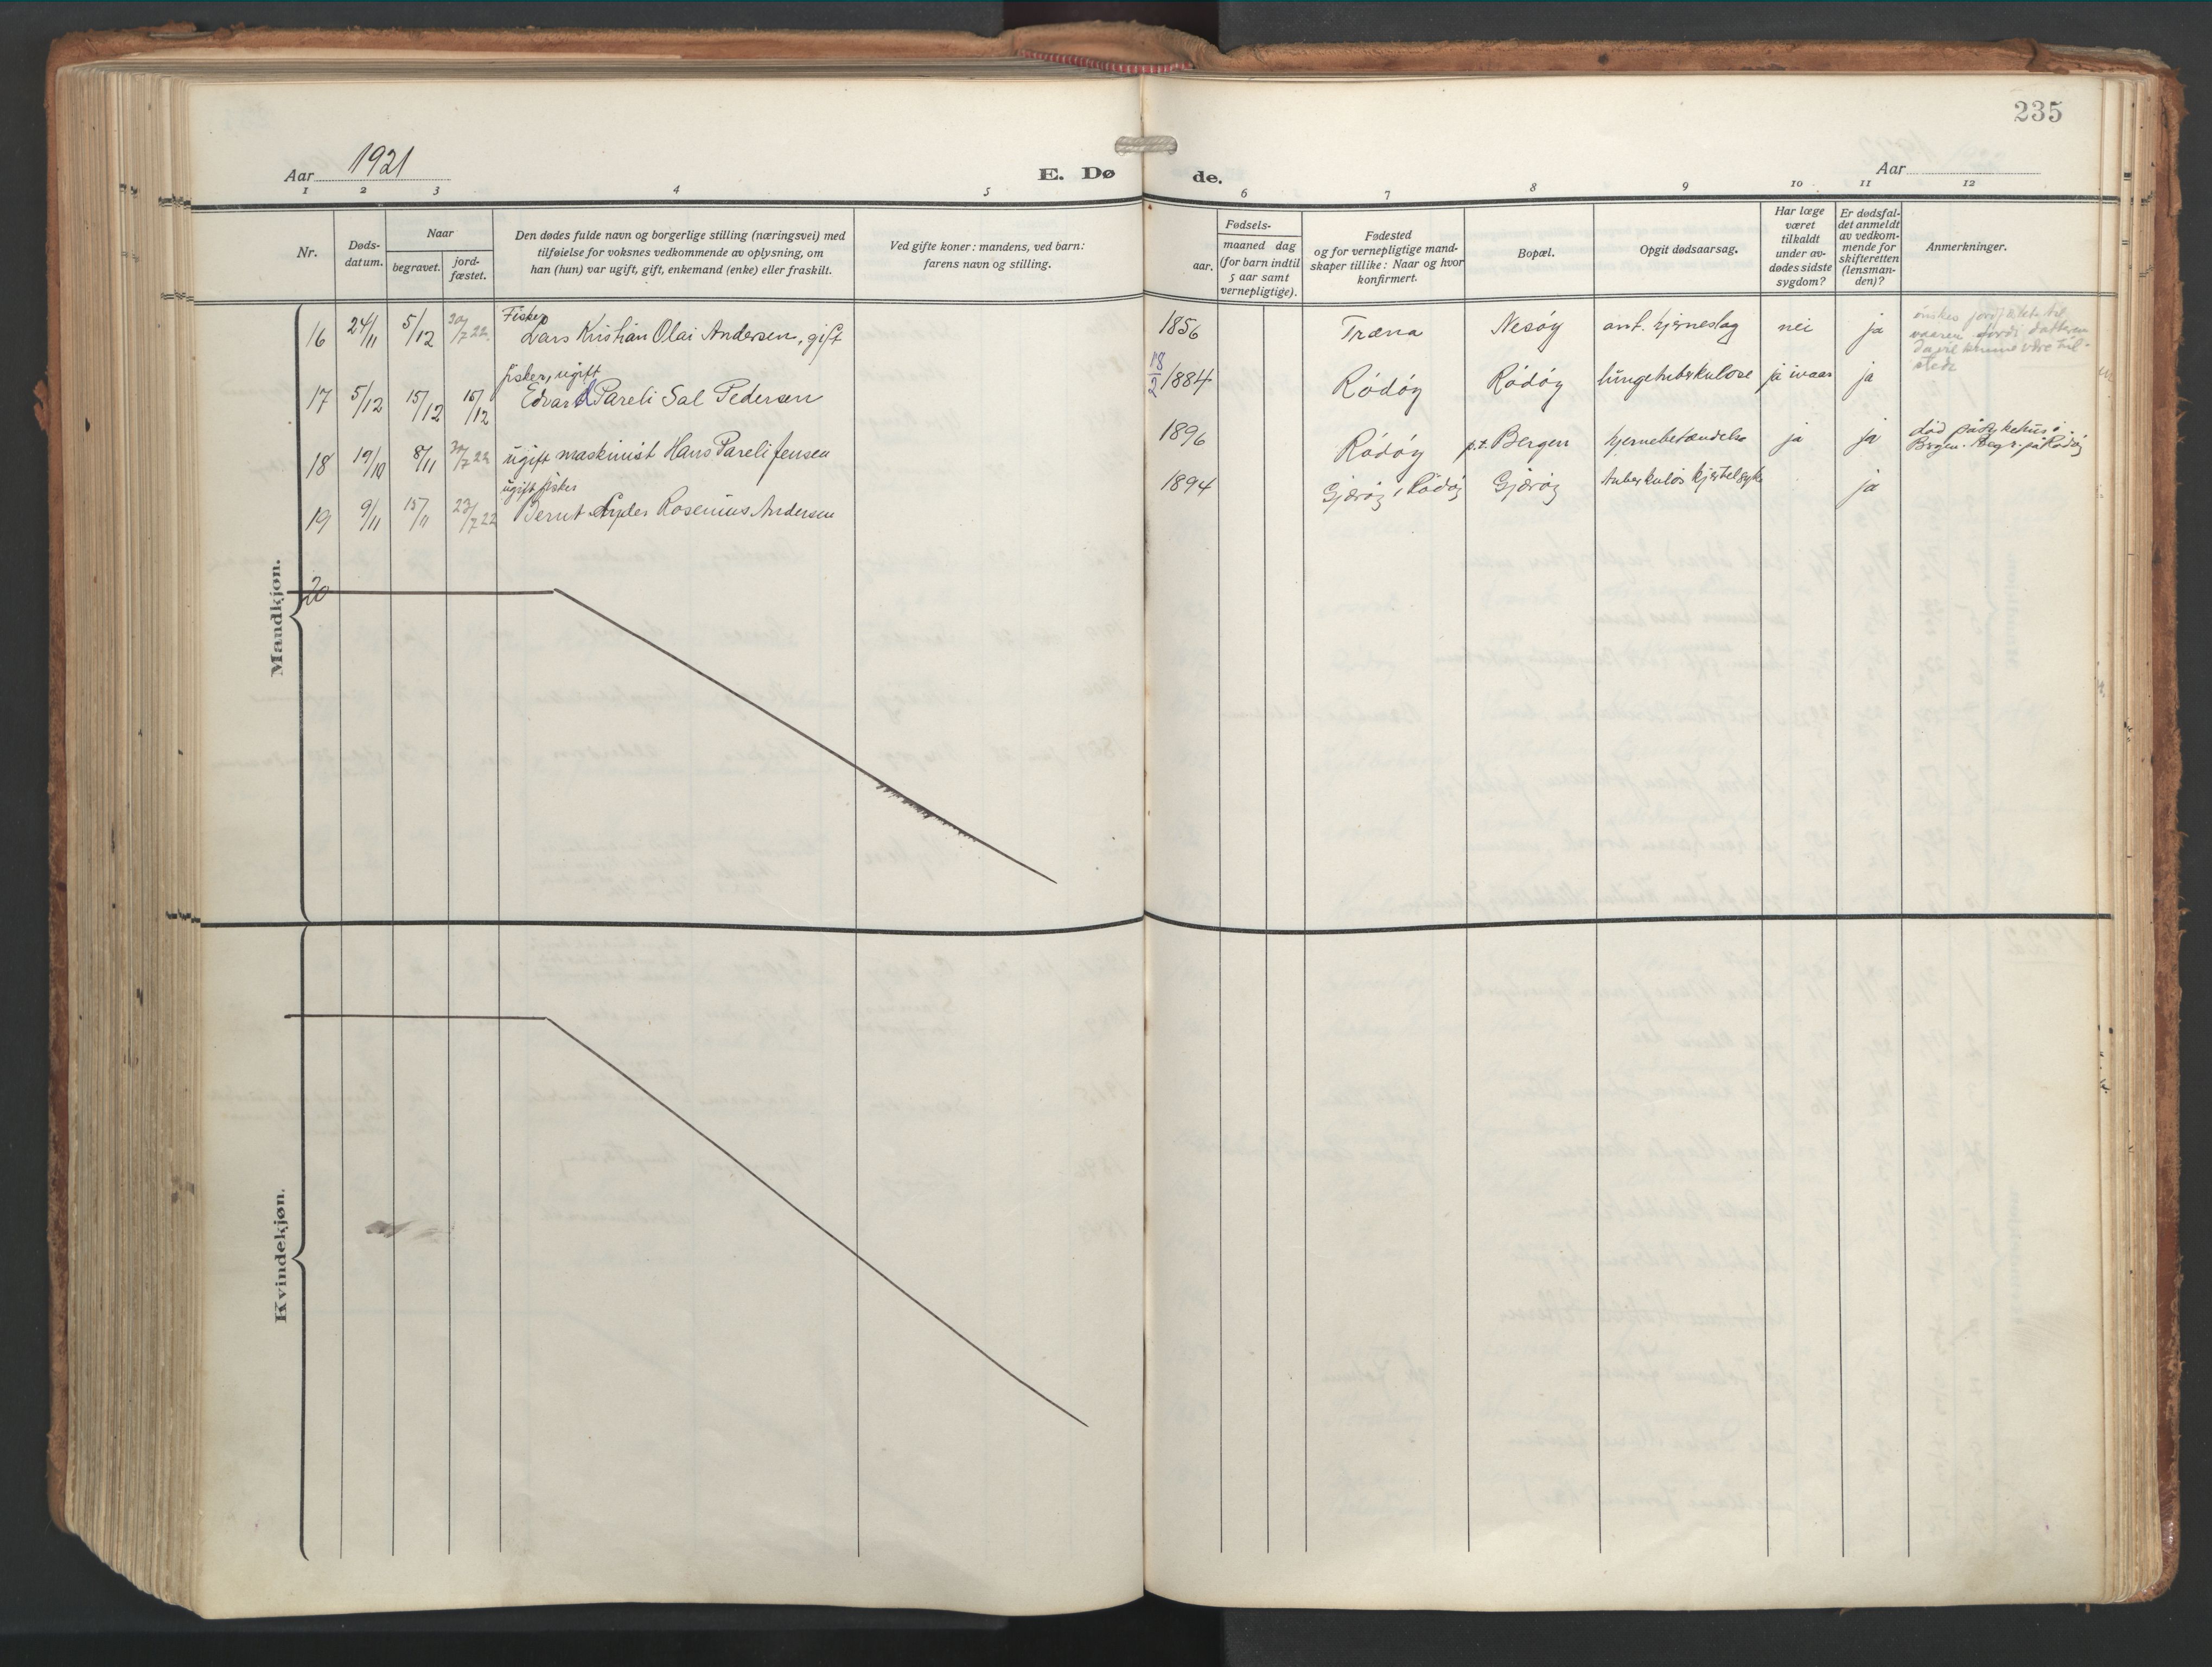 235
Aar 1921
E. Døde.
Aar
1 2 3 4 5 6 7 8 9 10 11 12
Nr.
Døds-
datum.
Naar
begravet.
jord-
fæstet.
Den dødes fulde navn og borgerlige stilling (næringsvei) med
tilføielse for voksnes vedkommende av oplysning, om
han (hun) var ugift, gift, enkemand (enke) eller fraskilt.
Ved gifte koner: mandens, ved barn:
farens navn og stilling.
Fødsels-
aar.
maaned dag
(for barn indtil
5 aar samt
vernepligtige).
Fødested
og for vernepligtige mand-
skaper tillike: Naar og hvor
konfirmert.
Bopæl.
Opgit dødsaarsag.
Har læge
været
tilkaldt
under av-
dødes sidste
sygdom?
Er dødsfal-
det anmeldt
av vedkom-
mende for
skifteretten
(lensman-
den)?
Anmerkninger.
Mandkjøn.
16 24/11 5/12 30/7 22 Fisker
Lars Kristian Olai Andersen, gift 1856 Træna Nesøy ant. hjerneslag nei ja ønskes jordfæstet til
vaaren fordi datteren
da vil kunne være til-
stede
17 5/12 15/12 15/12 fisker, ugift
Edvard Pareli Sal Pedersen 18/2 1884 Rødøy Rødøy lungetuberkulose ja ivaar ja
18 19/10 8/11 30/7 22 ugift maskinist Hans Pareli Jensen 1896 Rødøy p.t. Bergen hjernebetændelse ja ja død på sykehus i
Bergen. Begr. på Rødøy
19 9/11 15/11 23/7 22 ugift fisker
Bernt Ryder Rosenius Andersen 1894 Gjærøy i Rødøy Gjærøy tuberkuløs kjertelsyke ja
20
Kvindekjøn.